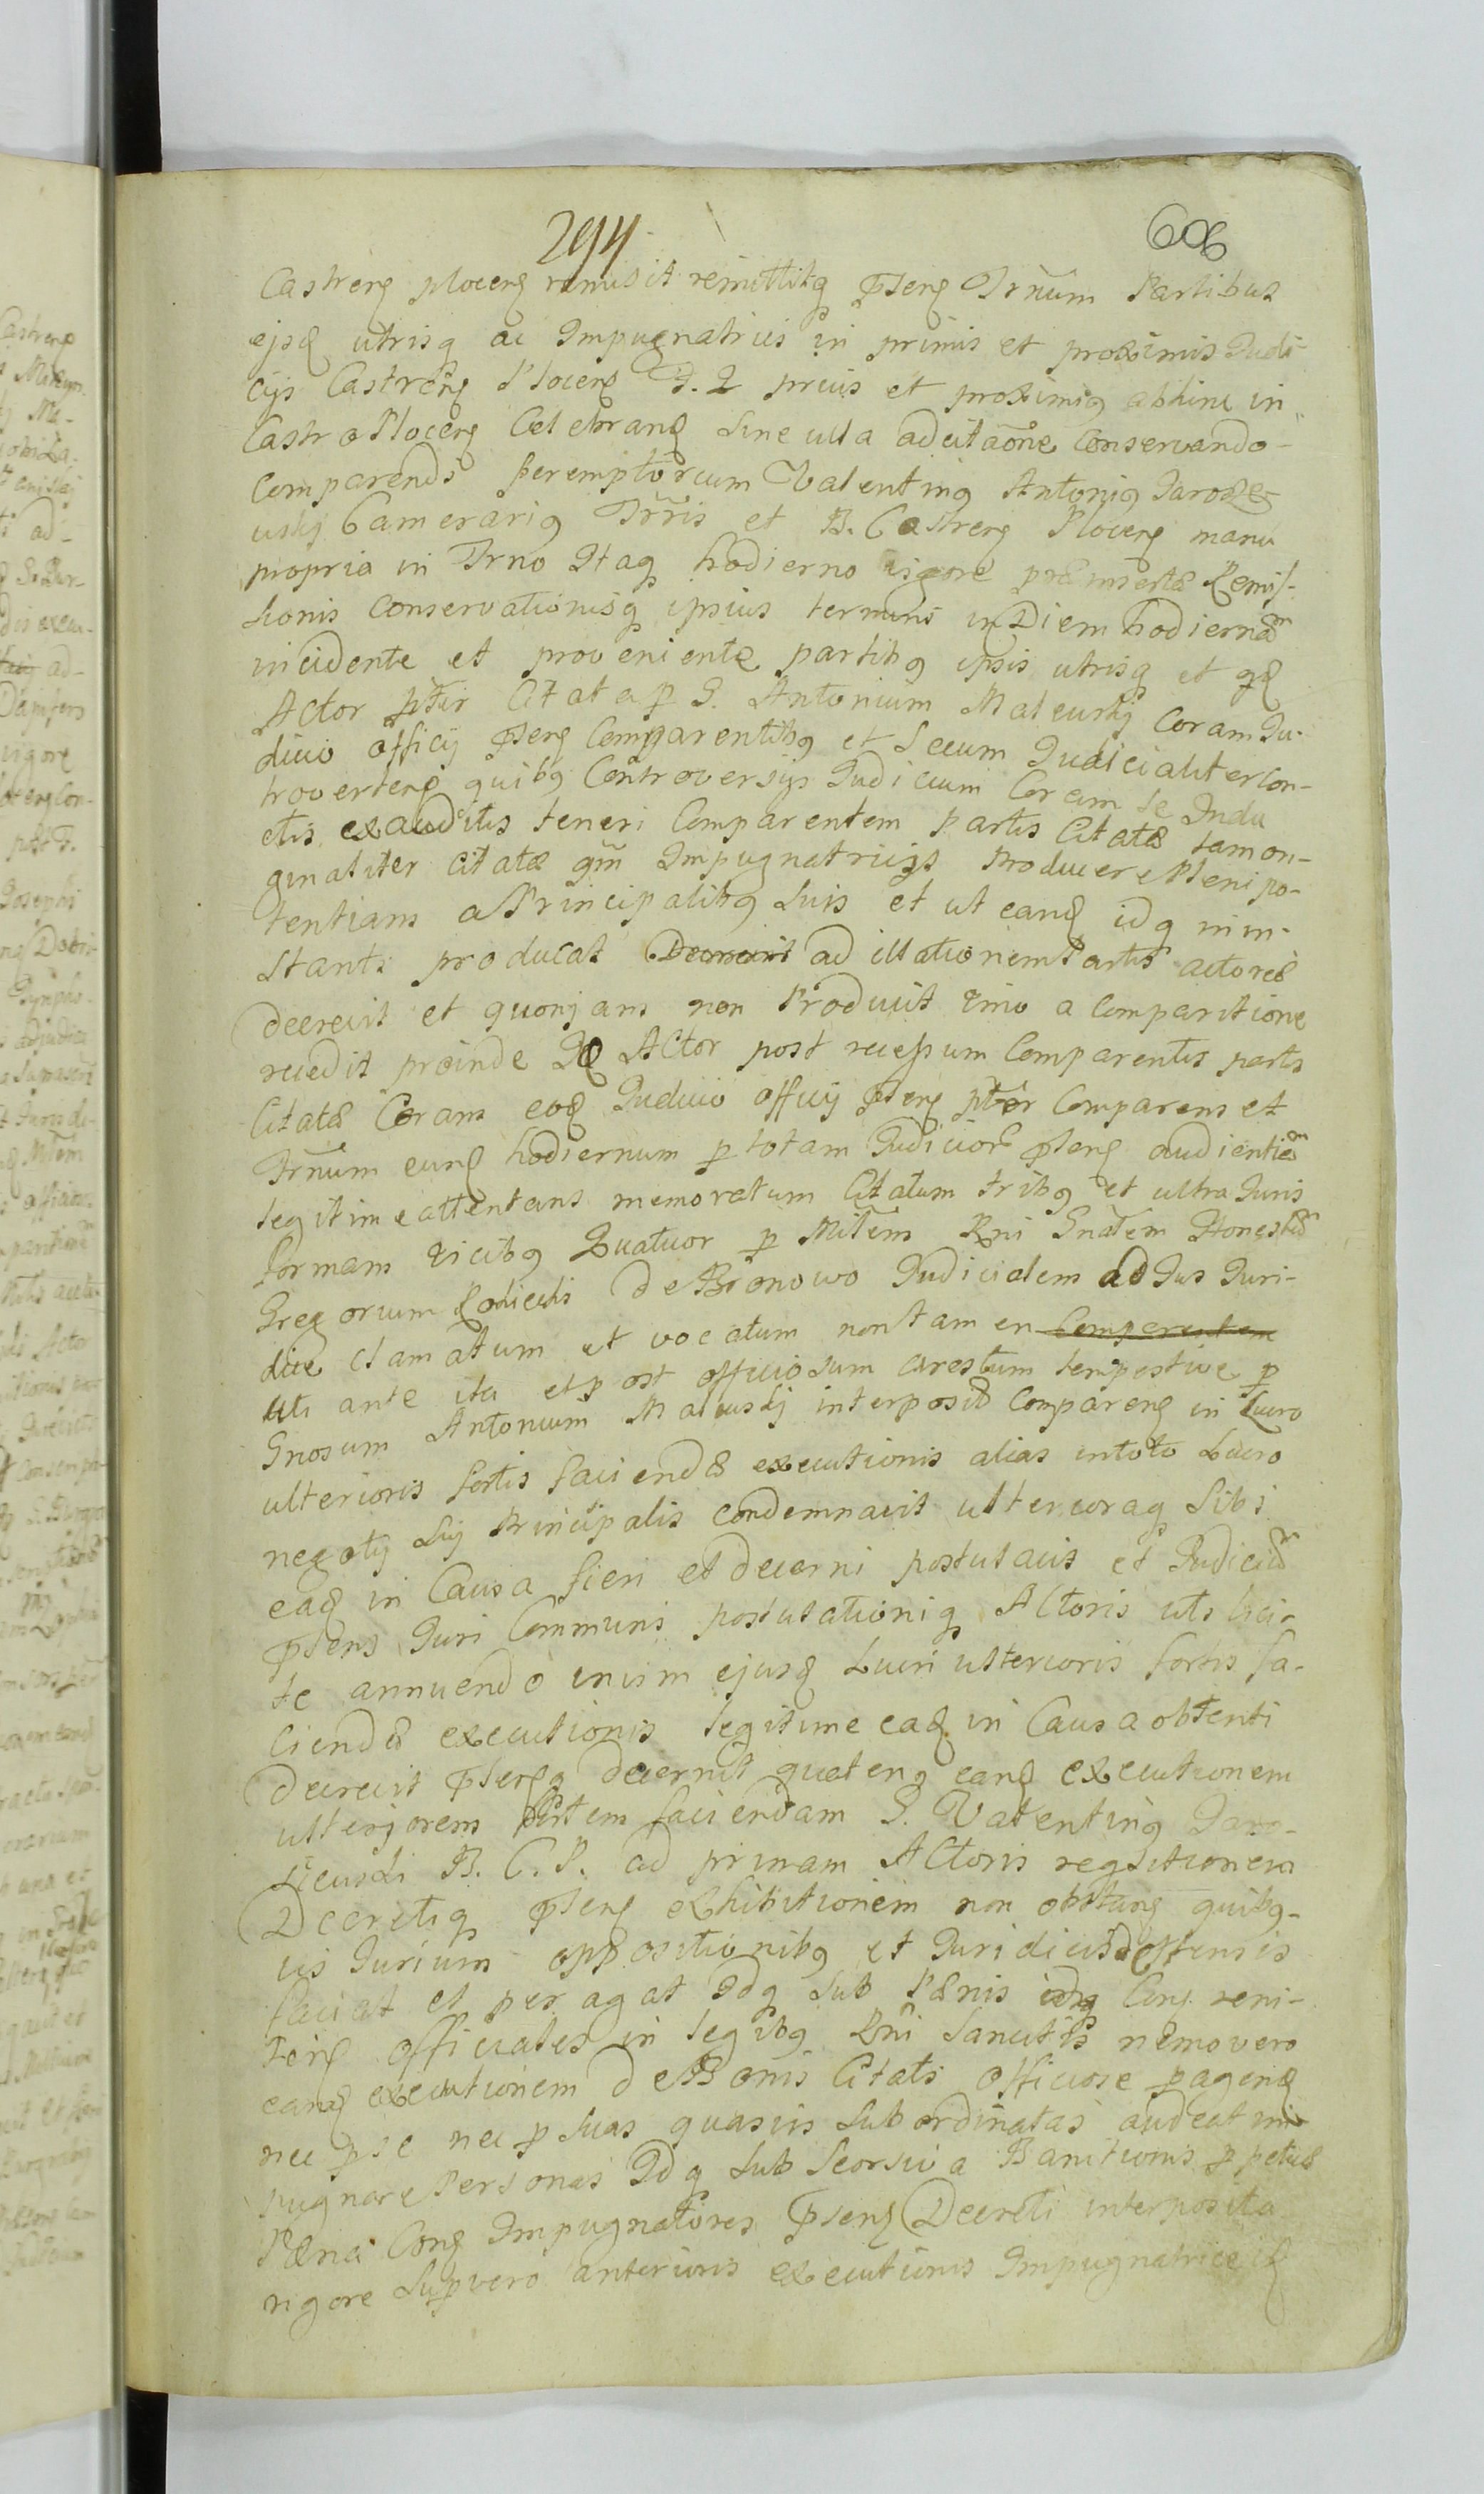 294 606
Castreng Ploceng remisit remittitq pñseng Trñum Partibus
ejsd utrisq ac Impugnatricis in primis et proximis Judi-
cijs Castreng Ploceng F. 2 prius et proximiq abhinc in
Castro Ploceng Celebrand sine ulla adcitaõne Conservando-
Comparendi peremptorium Valenting Antoniq Jarosze-
wskij Camerariq Trris et B. Castreng Ploceng manu
propria in Trno Itaq hodierno vigore præinsertæ Remis-
sionis Conservationisq ipsius termini in Diem hodiernam
incidente et proveniente partibq ipsis utrisq et qd
Actor ptr Citata p G. Antonium Maleuskj Coram Ju-
dicio officij pñseng Comparentibq et Secum Judicialiter Con-
troverteng quibq Controversijs Judicium Coram se Indu
ctis exauditis teneri Comparentem partis Citatæ tam on-
ginaliter citatæ qm Impugnatricis Producere Plenipo-
tentiam a Principalibq suis et ut eand idq in in-
stanti producat ad illationem Partis actoreæ
decrevit et quonjam non Produxit imo a Comparitione
recedit proinde Actor post recessum Comparentis partis
Citatæ Coram eod Judicio officij pñseng pter Comparens et
Trñum eund hodiernum p totam Judicior pñseng audientiã
legitime attentans memoratum Citatum tribq et ultra Juris
formam vicibq Quatuor p Mitem Rni Gnalem Honestũ
Gregorium de Bronowo Judicialem ad Jus Juri-
dice clamatum et vocatum non tamen Comparentem
uti ante ita et post officiosum arestum tempestive p
Gnosum Antonium Maleuskj interposit Compareng in lucro
ulterioris fortis faciendæ executionis alias in toto Lucro
negotij sui Principalis condemnavit ulterioraq sibi
ead in Causa fieri et decerni postulavit et Judiciũ
pñsens Juri Communi postulationiq Actoris uti lici-
te annuendo in vim ejusd Lucri ulterioris fortis fa-
ciendæ executionis legitime ead in Causa obtenti
decrevit pñsengq decernit quateng eand executionem
ulteriorem fortem faciendam G. Valenting Jaro-
B. C. P. ad primam Actoris reqsitionem
Decretiq pñseng exhibitionem non obstang quibq-
vis Jurium oppositionibq et Juridicis deffensis
faciat et peragat Idq sub Pænis Cong reni-
teng officiales in legibq Rni sancitis nemo vero
eand executionem de Bonis Citati officiose pagend
nec p se nec p suas quasvis subordinatas audeat im
pugnare Personas Idq sub seorsiva Banitionis ppetuæ
Pæna Cong Impugnatores pñseng Decreti interposita
rigore sup vero anterioris executionis Impugnatrice